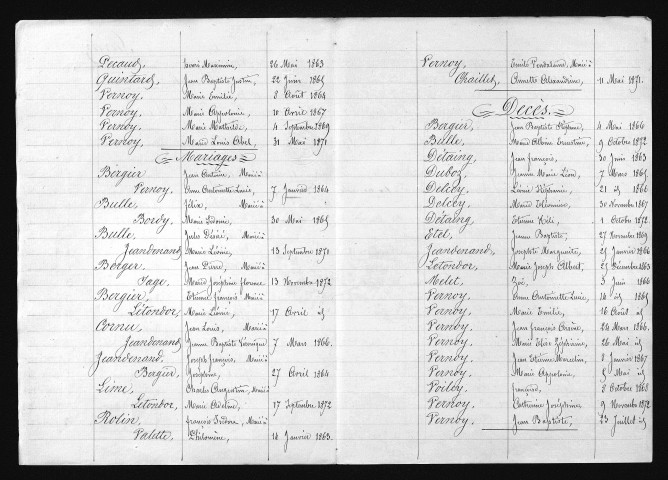 Pecaud, Marie Maximin, 26 Mai 1863
Quintard, Jean Baptiste Justin, 22 Juin 1865
Vernoy, Marie Emilie, 8 Août 1864
Vernoy, Marie Appolonie, 10 Avril 1867
Vernoy, Marie Mathilde, 4 Septembre 1869
Vernoy, Marie Louis Abel, 31 Mai 1871
Mariages
Bergier Jean Antoine, Marié à
Vernoy, Anne Antoinette Lucie, 7 Janvier 1864
Bulle, Félix, Marié à
Bordy, Marie Sidonie, 30 Mai 1865
Bulle, Jules Désiré, Marié à
Jeandenand, Marie Léonie, 13 Septembre 1870
Berger, Jean Pierre, Marié à
Page, Marie Joséphine 13 Novembre 1872
Bergier, Etienne françois Marié à
Létondor, Marie Léonie, 17 Avril id
Cornu, Jean Louis, Marié à
Jeandenand, Jeanne Baptiste Véronique 7 Mars 1866.
Jeandenand, Joseph françois, Marié à
Bergier, Joséphine, 27 Avril 1864
Lime, Charles Augustin, Marié à
Létondor, Marie Adeline, 17 Septembre 1872
Rolin, françois Isidore, Marié à
Valette, Philomène, 14 Janvier 1863.
Vernoy, Emile Marié à
Chaillet, Annette Alexandrine, 11 Mai 1871.
Décès.
Bergier, Jean Baptiste 4 Mai 1866
Bulle, Marie Albine Ernestine, 9 Octobre 1872
Détaing, Jean françois, 30 Juin 1863
Duboz, Jeanne Marie 7 Mars 1865
Delcey, Léonie Stéphanie, 21 id 1866
Delcey, Marie 30 Novembre 1867
Détaing, Etienne 1 Octobre 1872
Etel, Jeanne Baptiste, 27 Novembre 1869
Jeandenand, Josephte Marguerite, 25 Janvier 1866
Létondor, Marie Joseph Albert, 27 Décembre 1863
Melet, Zoé, 3 Juin 1866
Vernoy, Anne Antoinette Lucie, 14 id 1865
Vernoy, Marie Emilie, 16 Août id
Vernoy, Jean françois 26 Mars 1866.
Vernoy, Marie Elise Zéphirine, 26 Mai id
Vernoy, Jean Etienne Marcelin, 8 Janvier 1867
Vernoy, Marie Appolonie, 5 Mai id
Voiley, françois, 8 Octobre 1868
Vernoy, Catherine Joséphine, 9 Novembre 1872
Vernoy, Jean Baptiste, 23 Juillet id